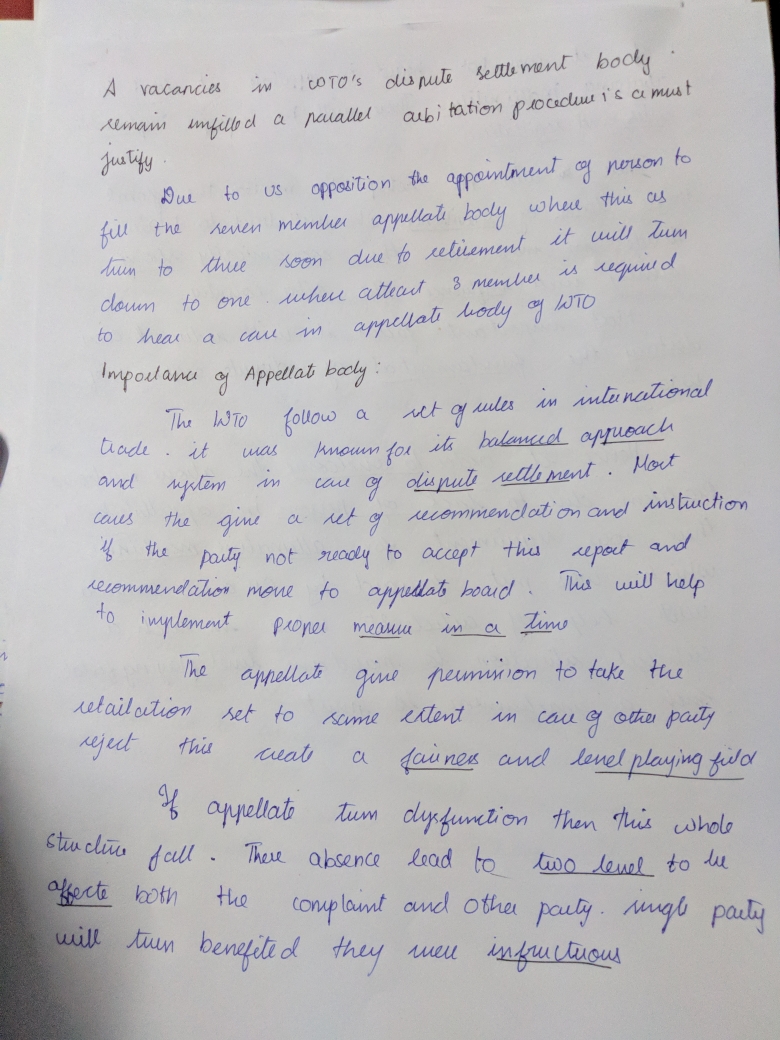 A vacancies in WTO's dispute settlement body
remain unfilled a parallel arbitation procedure is a must
justify.
Due to us opposition the appointment of person to
fill the seven member appellate body where this as
turn to three soon due to retirement it will turn
down to one. when atleast 3 member is required
to hear a case in appellate body of WTO
Importance of Appellat body:
The WTO follow a set of rules in international
trade. it was known for its balanced approach
and system in case of dispute settlement. Most
cases the give a set of recommendation and instruction
if the party not ready to accept this report and
recommendation move to appellate board. This will help
to implement proper measure in a time
The appellate give permission to take the
retailation set to some extent in case of other party
reject this create a fairness and level playing field
If appellate turn dysfunction then this whole
structure fall. There absence lead to two level to be
affecte both the complaint and other party. single party
will turn benefited they were infructuous